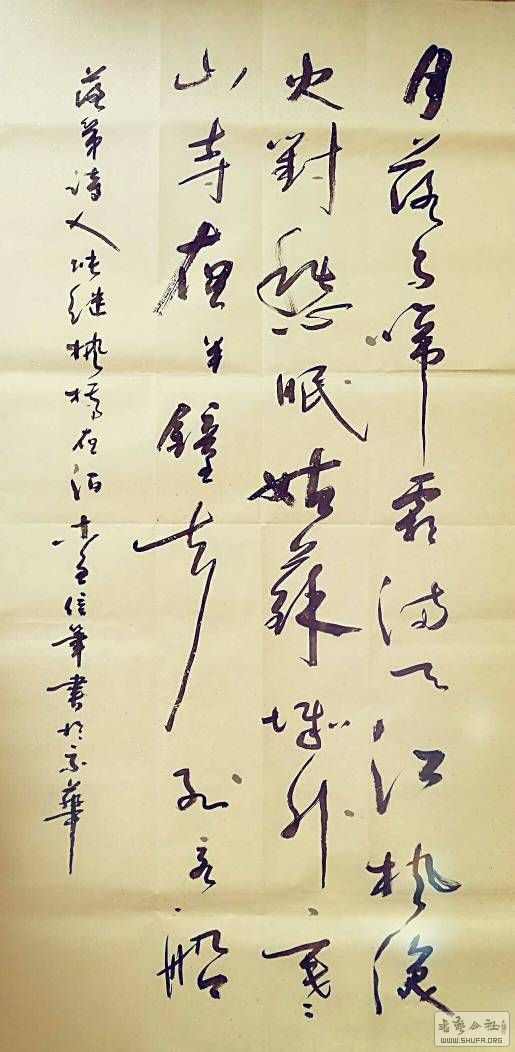 月落烏啼霜滿天江楓漁
火對愁眠姑蘇城外寒
山寺夜半鐘聲到客船
落第詩人張繼楓橋夜泊信筆書於京華
书艺公社
WWW.SHUFA.ORG